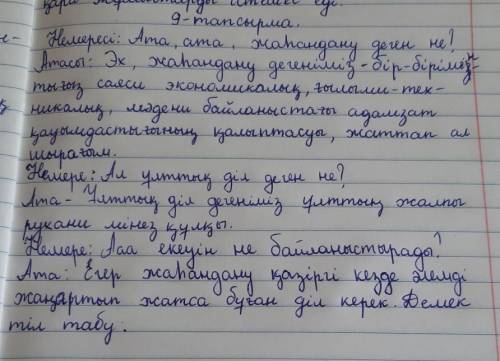 қара жұмыстарды істейді еді.
9-тапсырма.
Немересі: Ата, ата, жаһандану деген не?
Атасы: Эх, жаһандану дегеніміз - бір-бірімен
тығыз саяси экономикалық, ғылыми-тех-
никалық, мәдени байланыстағы адамзат
қауымдастығының қалыптасуы, жаттап ал
шырағым.
Немере: Ал ұлттық діл деген не?
Ата - Ұлттық діл дегеніміз ұлттың жалпы
рухани мінез құлқы.
Немере: Ааа екеуін не байланыстырады?
Ата: Егер жаһандану қазіргі кезде әлемді
жаңартып жатса бұған діл керек. Демек
тіл табу.